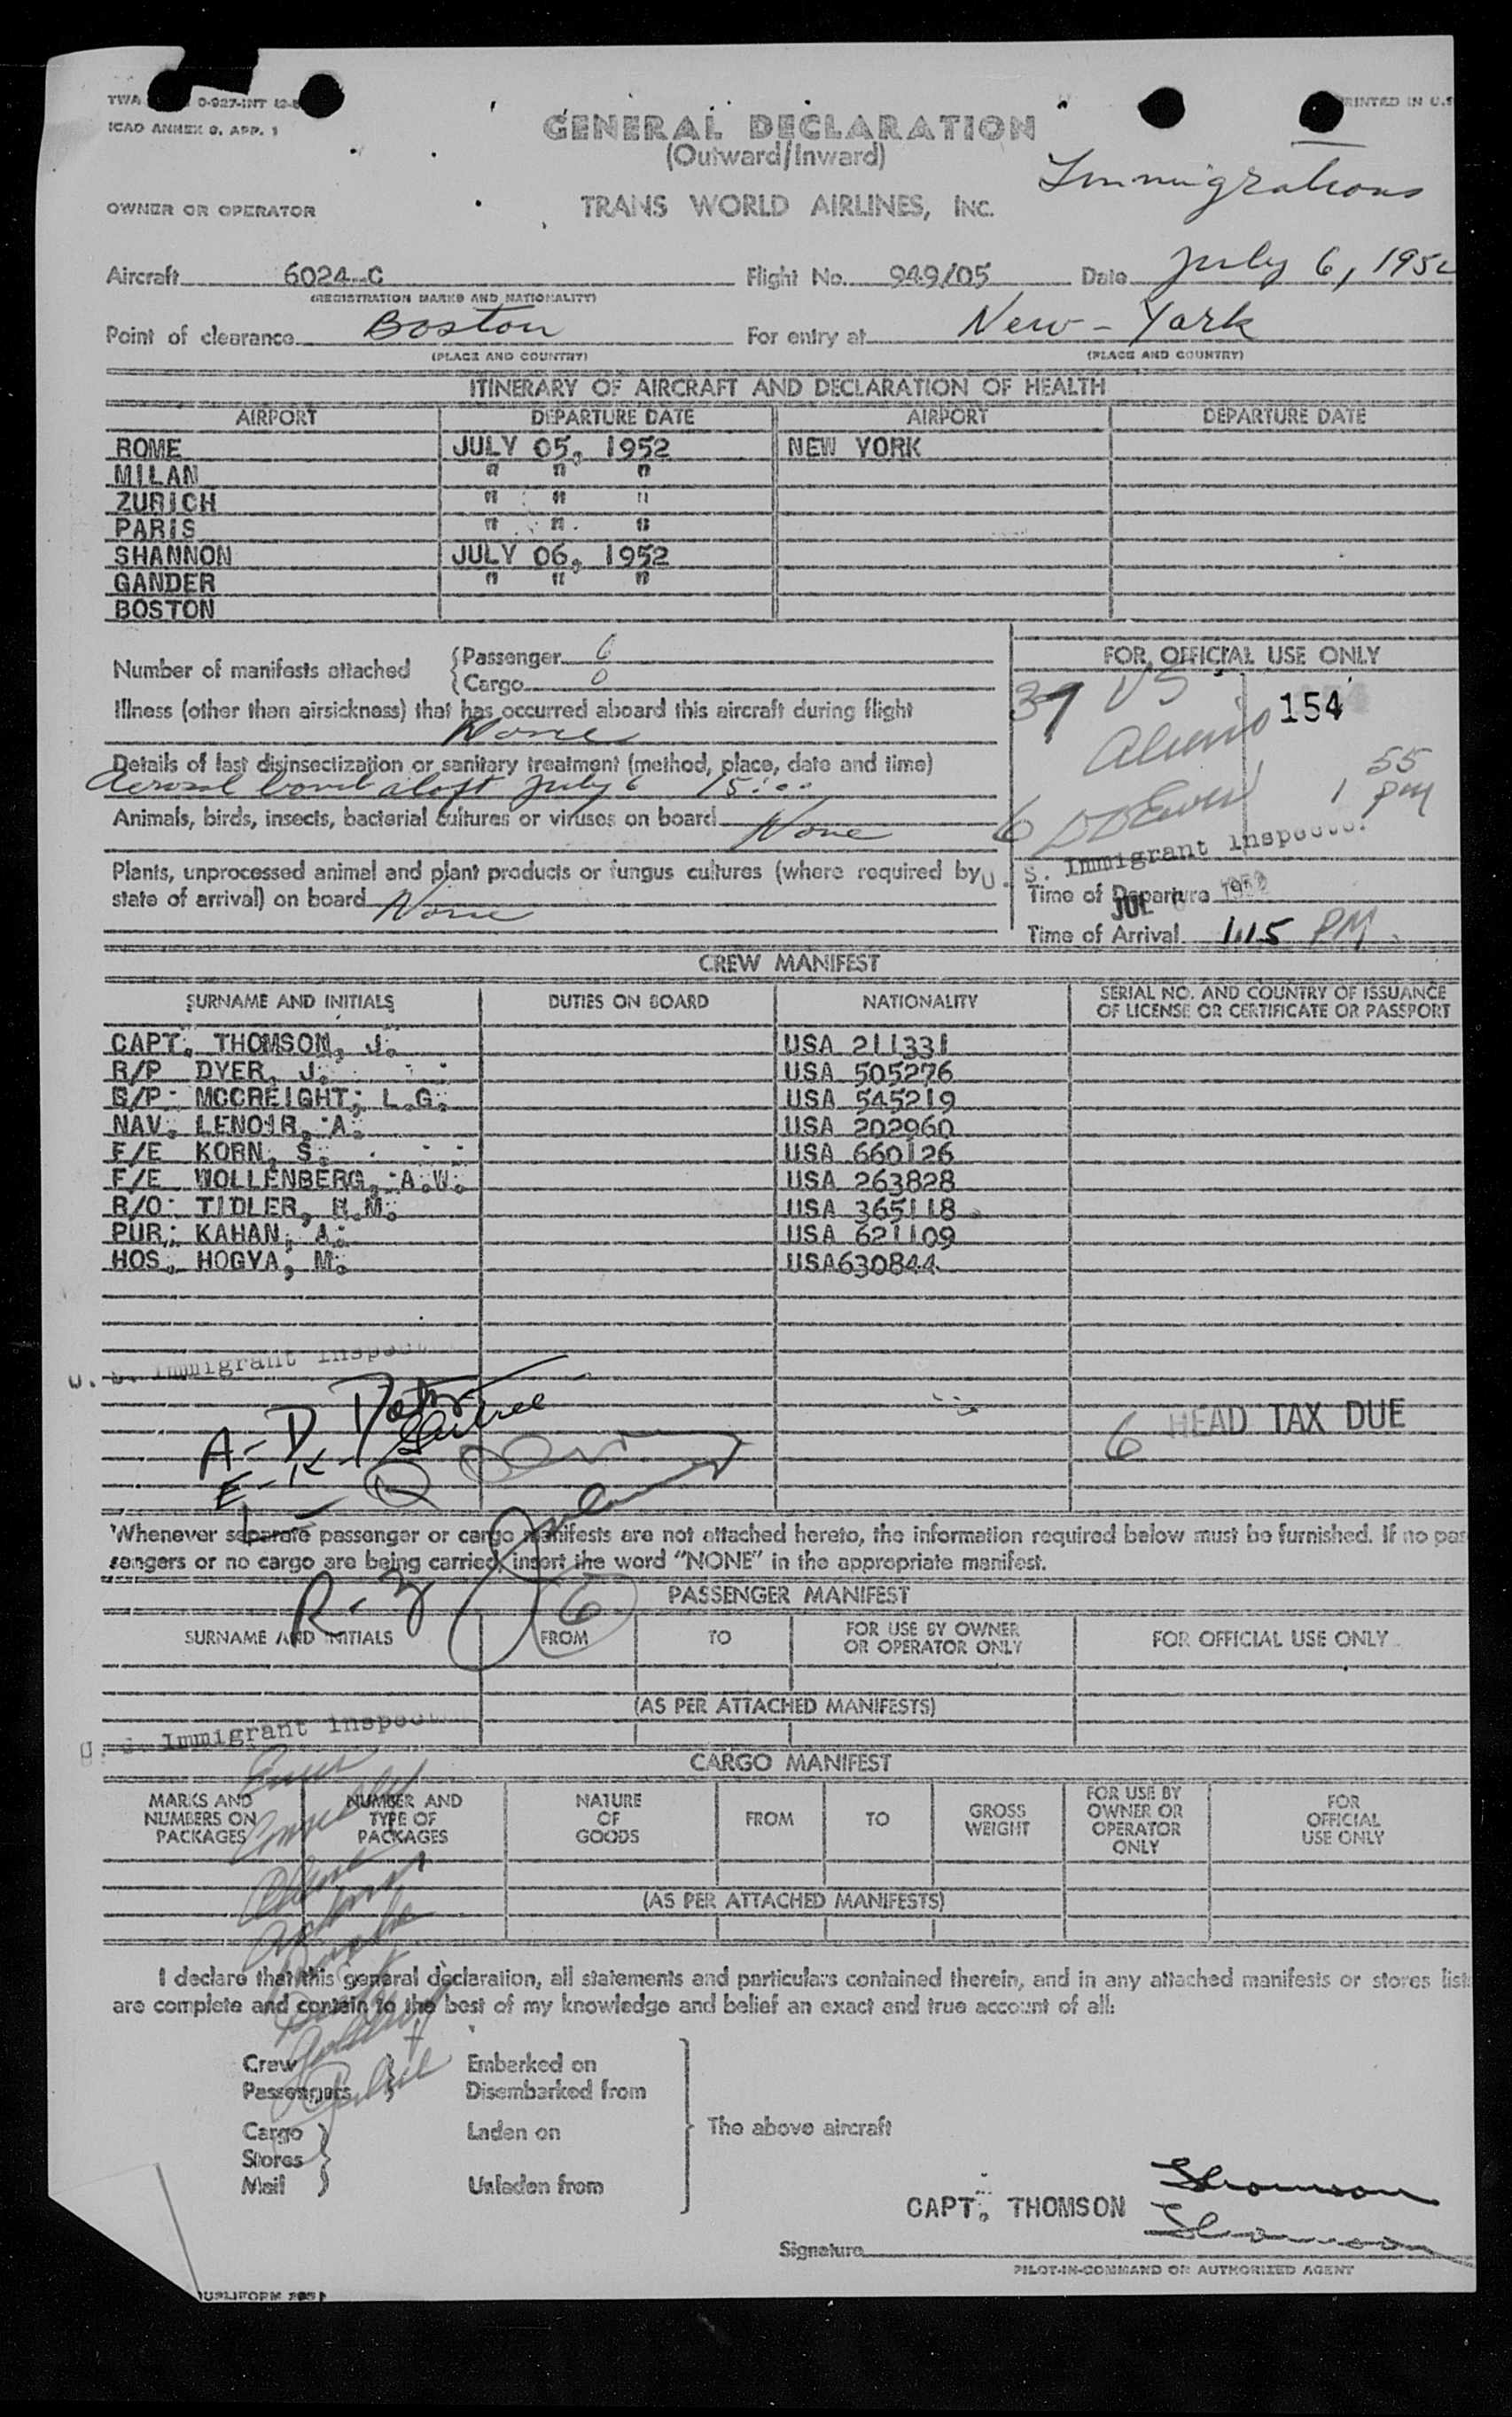 TWA 0-927-INT
PRINTED IN U.S
ICAO ANNEX 9, APP. 1
GENERAL DECLARATION
(Outward/Inward)
Immigrations
OWNER OR OPERATOR
TRANS WORLD AIRLINES, INC.
Aircraft 6024-C Flight No. 949/05 Date July 6, 1952
(REGISTRATION MARKS AND NATIONALITY)
Point of clearance Boston For entry at New-York
(PLACE AND COUNTRY) (PLACE AND COUNTRY)
ITINERARY OF AIRCRAFT AND DECLARATION OF HEALTH
AIRPORT DEPARTURE DATE AIRPORT DEPARTURE DATE
ROME JULY 05, 1952 NEW YORK
MILAN " " "
ZURICH " " "
PARIS " " "
SHANNON JULY 06, 1952
GANDER " " "
BOSTON
Number of manifests attached { Passenger 6
{ Cargo 0
FOR OFFICIAL USE ONLY
37 US 154
Illness (other than airsickness) that has occurred aboard this aircraft during flight
None
Details of last disinsectization or sanitary treatment (method, place, date and time)
Aerosol bomb aloft July 6 15:00
55
1 PM
Animals, birds, insects, bacterial cultures or viruses on board None
6
U. S. Immigrant Inspector
Plants, unprocessed animal and plant products or fungus cultures (where required by
state of arrival) on board None
Time of Departure
JUL 1952
Time of Arrival 1:15 PM
CREW MANIFEST
SURNAME AND INITIALS DUTIES ON BOARD NATIONALITY SERIAL NO. AND COUNTRY OF ISSUANCE
OF LICENSE OR CERTIFICATE OR PASSPORT
CAPT. THOMSON, J. USA 211331
R/P DYER, J. USA 505276
S/P MCCREIGHT, L.G. USA 545219
NAV. LENOIR, A. USA 202960
F/E KORN, S. USA 660126
F/E WOLLENBERG, A.W. USA 263828
R/O TIDLER, H.M. USA 365118
PUR. KAHAN, A. USA 621109
HOS. HOGYA, M. USA630844
U. S. Immigrant Inspect
A-D
E-K
6 HEAD TAX DUE
L-Q
Whenever separate passenger or cargo manifests are not attached hereto, the information required below must be furnished. If no pas
sengers or no cargo are being carried, insert the word "NONE" in the appropriate manifest.
R-Z
6
PASSENGER MANIFEST
SURNAME AND INITIALS FROM TO FOR USE BY OWNER
OR OPERATOR ONLY FOR OFFICIAL USE ONLY
(AS PER ATTACHED MANIFESTS)
U. S. Immigrant Inspect
CARGO MANIFEST
MARKS AND
NUMBERS ON
PACKAGES
NUMBER AND
TYPE OF
PACKAGES
NATURE
OF
GOODS
FROM
TO
GROSS
WEIGHT
FOR USE BY
OWNER OR
OPERATOR
ONLY
FOR
OFFICIAL
USE ONLY
(AS PER ATTACHED MANIFESTS)
I declare that this general declaration, all statements and particulars contained therein, and in any attached manifests or stores list
are complete and contain to the best of my knowledge and belief an exact and true account of all:
Crew Embarked on
Passengers Disembarked from
Cargo Laden on The above aircraft
Stores
Mail Unladen from
CAPT. THOMSON Thomson
Thomson
Signature
PILOT-IN-COMMAND OR AUTHORIZED AGENT